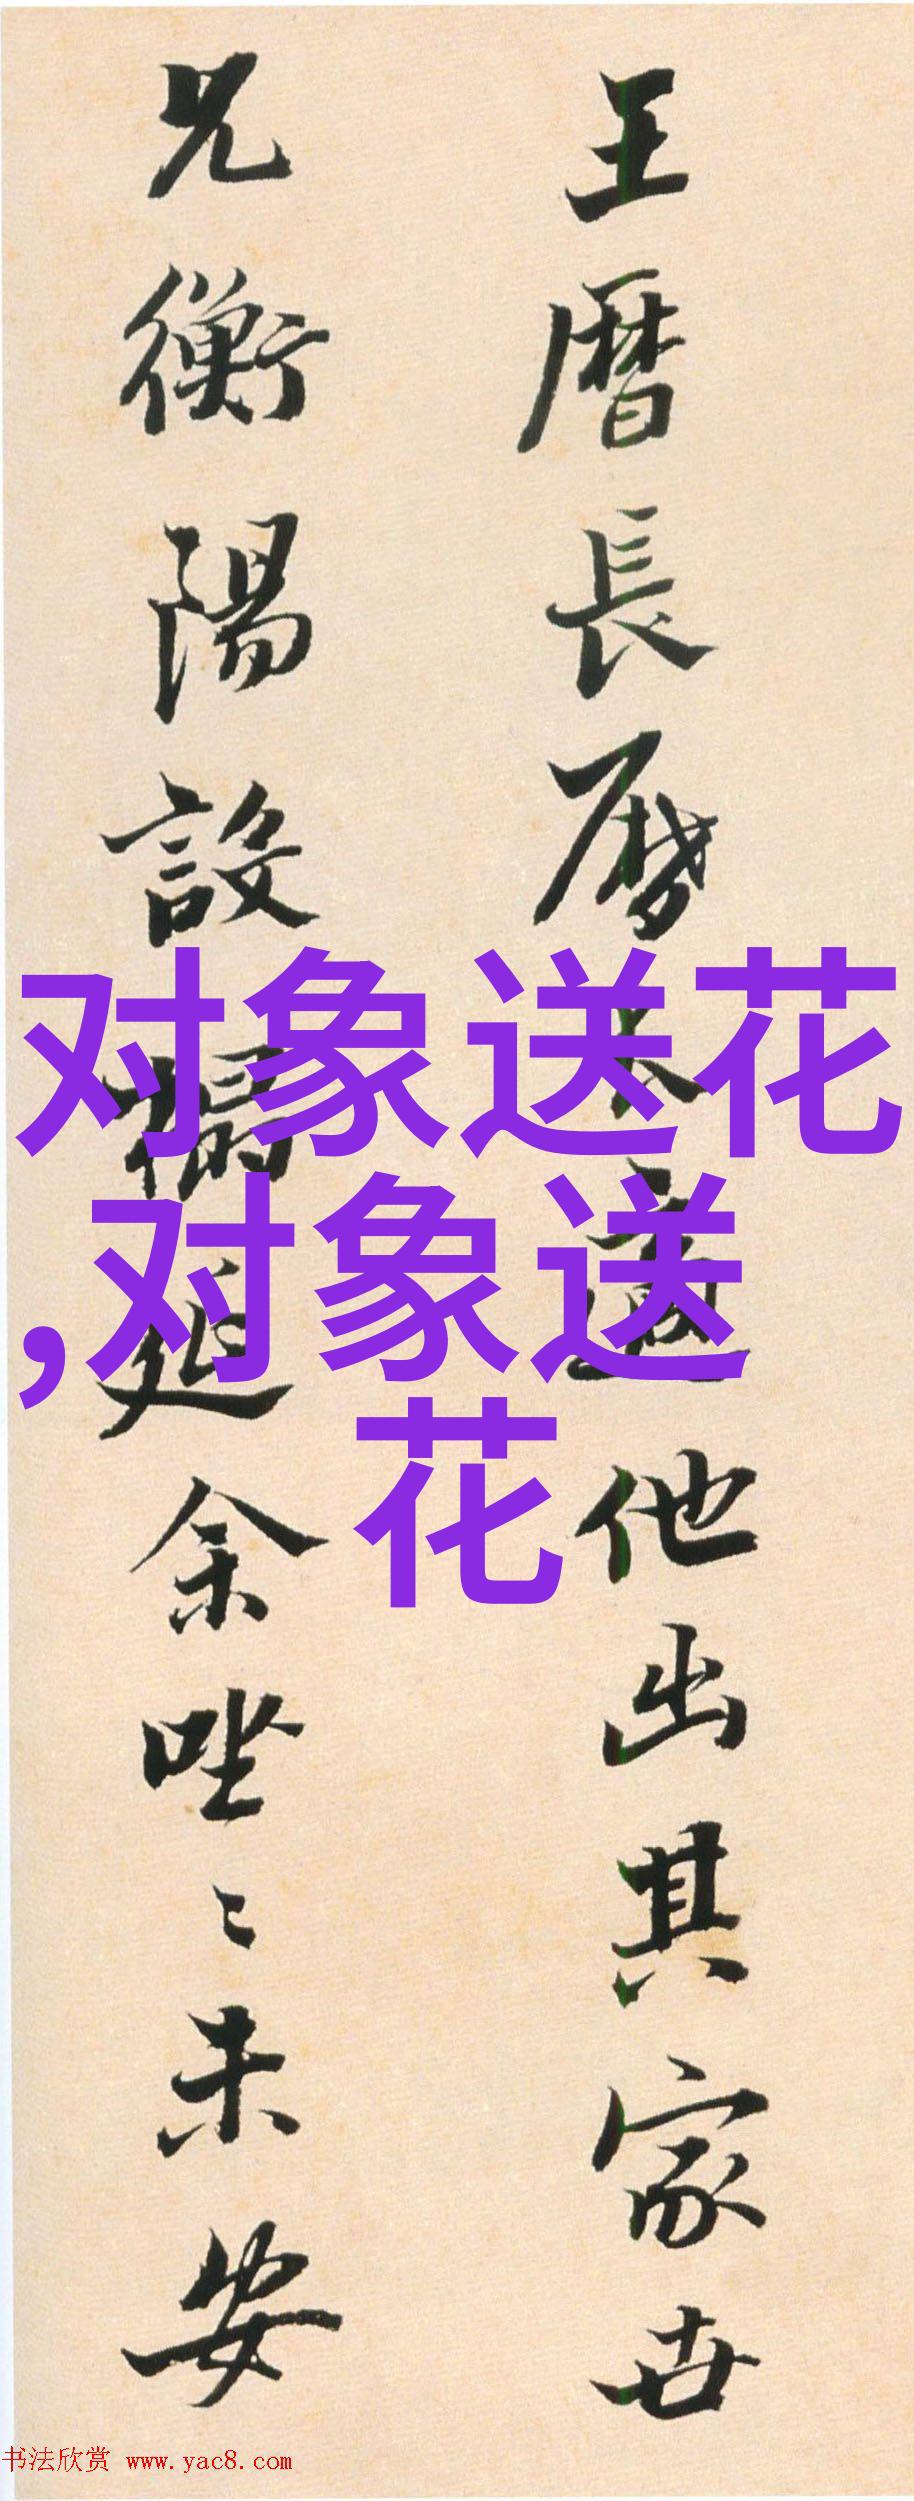 王曆長曆
他出其家世
兄衡陽設
延余唑〻未安
对象送花
,对象送
花
书法欣赏 www.yac8.com